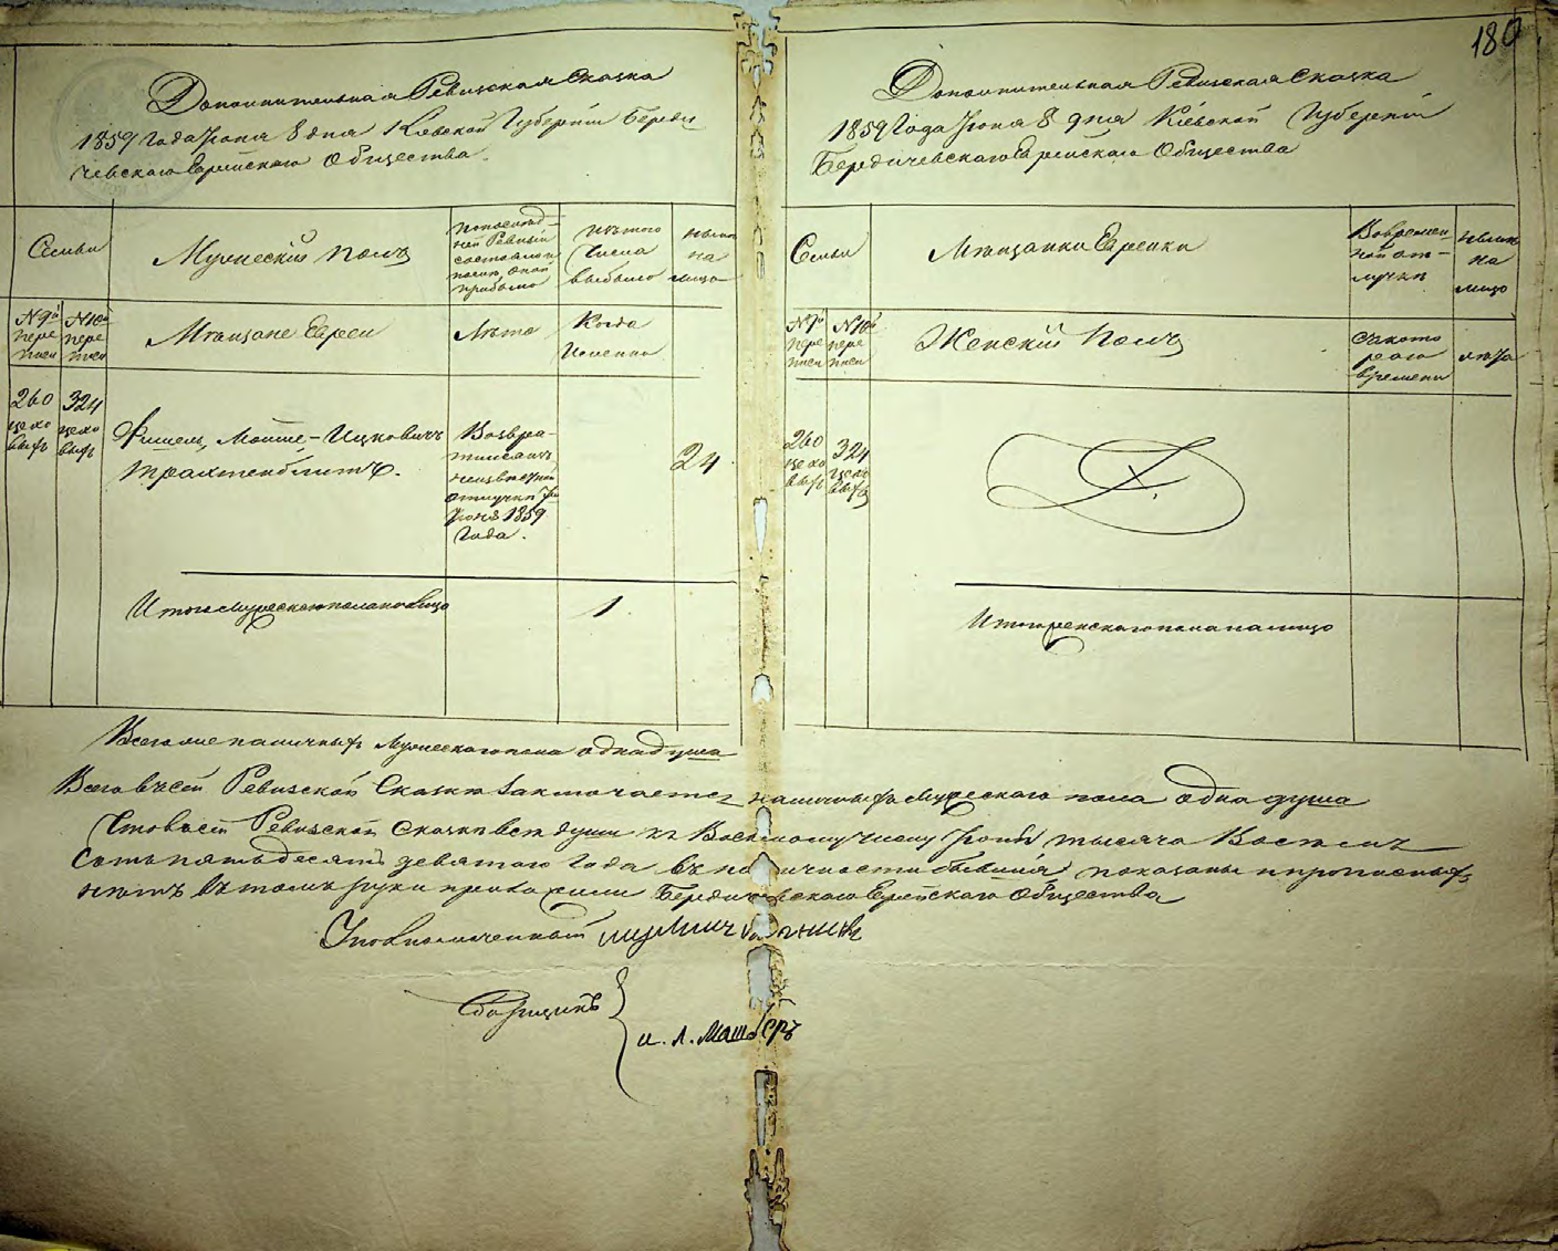 180
Дополнительная Ревизская Сказка
1859 Года Июня 8 дня Киевской Губернiи Берди
чевскаго Еврейскаго Общества.
Семьи
Мужескiй Полъ
по последней Ревизiи состояло и после оной прибыло
изъ того
Числа
выбыло
ныне
на
лицо
№ 9й
пере
писи
№ 10й
пере
писи
Мѣщане Евреи
Лѣта
Когда
именно
260
цехо
выхъ
324
цехо
выхъ
Фишель, Мошие-Ицковичъ
Трахтенблитъ.
Возвра-
тился изъ
неизвѣстной
отлучки
Июня 1859
Года.
24
Итого мужескаго пола на лицо
1
Дополнительная Ревизская Сказка
1859 Года Июня 8 дня Кiевской Губернiи
Бердичевскаго Еврейскаго Общества
Семьи
Мѣщанки Еврейки
Во времен
ной от-
лучкѣ
ныне
на
лицо
пере
писи
№ 10й
пере
писи
Женскiй Полъ
съ кото
раго
времени
лѣта
260
цехо
выхъ
324
цехо
выхъ
Итого женскаго пола на лицо
Всего наличныхъ Мужескаго пола одна душа
Всего въ сей Ревизской Сказкѣ Заключается наличныхъ Мужескаго пола одна душа
Что въ сей Ревизской Сказкѣ всѣ души къ Восьмому числу Июня тысяча Восемь
сотъ пятьдесятъ девятаго Года въ наличности бывшiя показаны и прописныхъ
нѣтъ въ томъ руки приложили Бердичевскаго Еврейскаго Общества
Уполномоченный
Сборщикъ
и. л. Машберъ